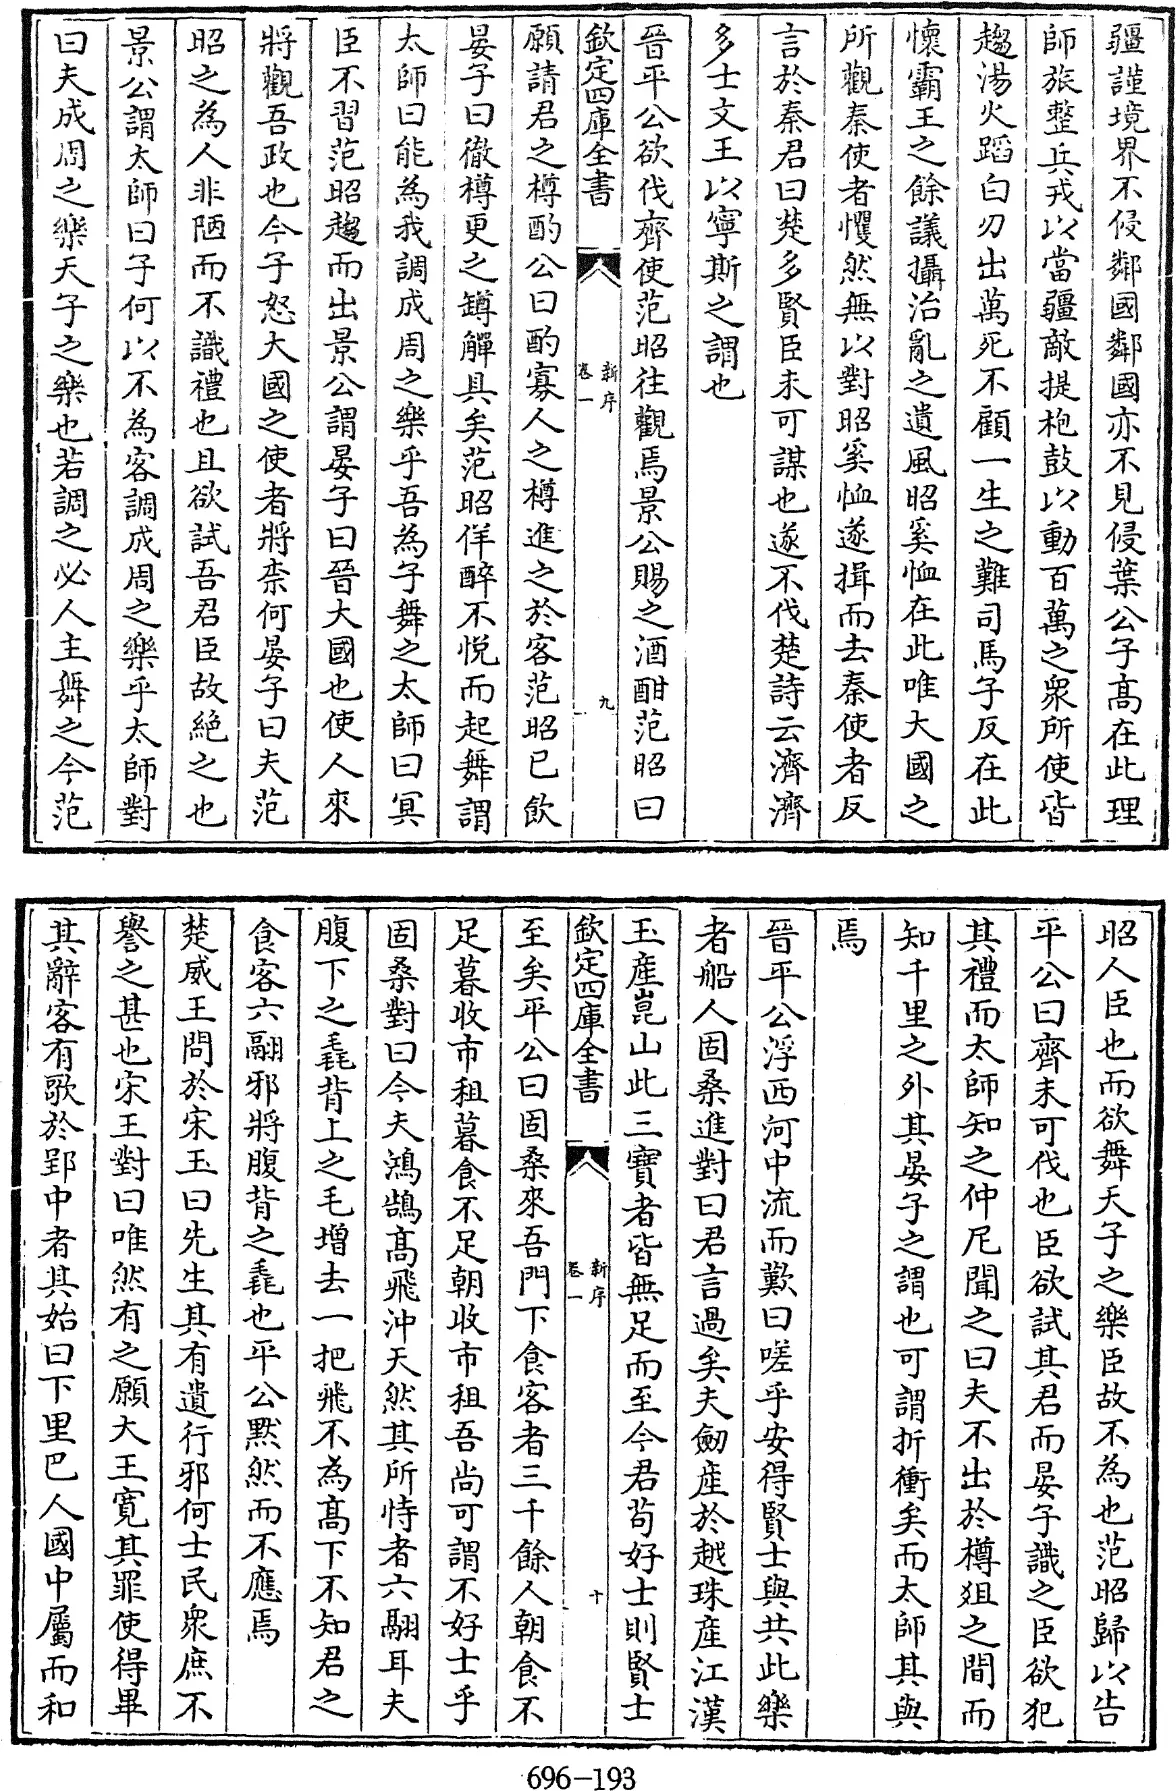 疆謹境界不侵鄰國鄰國亦不見侵葉公子髙在此理
師旅整兵戎以當疆敵提枹鼓以動百萬之衆所使皆
趨湯火蹈白刃出萬死不顧一生之難司馬子反在此
懷霸王之餘議攝治亂之遺風昭奚恤在此唯大國之
所觀秦使者懼然無以對昭奚恤遂揖而去秦使者反
言於秦君曰楚多賢臣未可謀也遂不伐楚詩云濟濟
多士文王以寧斯之謂也
晉平公欲伐齊使范昭往觀焉景公賜之酒酣范昭曰
欽定四庫全書
新序
卷一
九
願請君之樽酌公曰酌寡人之樽進之於客范昭已飲
晏子曰徹樽更之罇觶具矣范昭佯醉不悅而起舞謂
太師曰能為我調成周之樂乎吾為子舞之太師曰冥
臣不習范昭趨而出景公謂晏子曰晉大國也使人來
將觀吾政也今子怒大國之使者將柰何晏子曰夫范
昭之為人非陋而不識禮也且欲試吾君臣故絶之也
景公謂太師曰子何以不為客調成周之樂乎太師對
曰夫成周之樂天子之樂也若調之必人主舞之今范
昭人臣也而欲舞天子之樂臣故不為也范昭歸以告
平公曰齊未可伐也臣欲試其君而晏子識之臣欲犯
其禮而太師知之仲尼聞之曰夫不出於樽俎之間而
知千里之外其晏子之謂也可謂折衝矣而太師其與
焉
晉平公浮西河中流而歎曰嗟乎安得賢士與共此樂
者船人固桑進對曰君言過矣夫劒産於越珠産江漢
玉産崑山此三寶者皆無足而至今君苟好士則賢士
欽定四庫全書
新序
卷一
十
至矣平公曰固桑來吾門下食客者三千餘人朝食不
足暮收市租暮食不足朝收市租吾尚可謂不好士乎
固桑對曰今夫鴻鵠髙飛沖天然其所恃者六翮耳夫
腹下之毳背上之毛增去一把飛不為髙下不知君之
食客六翮邪將腹背之毳也平公默然而不應焉
楚威王問於宋玉曰先生其有遺行邪何士民衆庶不
譽之甚也宋玉對曰唯然有之願大王寛其罪使得畢
其辭客有歌於郢中者其始曰下里巴人國中屬而和
696-193